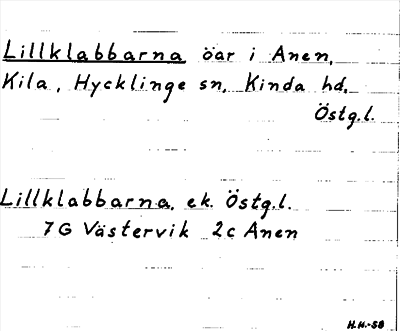 Lillklabbarna öar i Anen,
Kila, Hycklinge sn, Kinda hd,
Östg.l.
Lillklabbarna, ek. Östg.l.
7G Västervik 2c Anen
H.H.-58